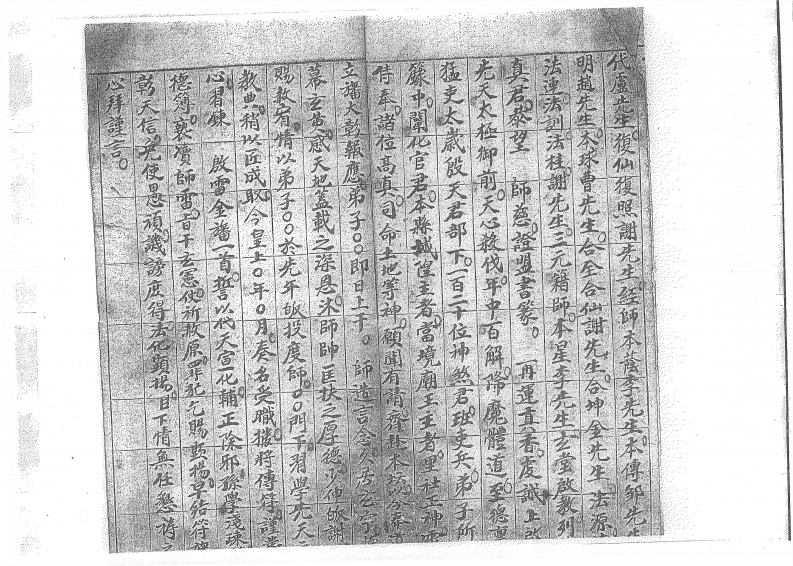 代盧先生復仙復照謝先生經師本蔭李先生本傳鄒先生
明趙先生本球曹先生合全合仙謝先生合坤金先生法源
法運法訓法桂謝先生三元籍師本星李先生玄堂啟教列
真君泰望 師慈證盟書篆 再運真香虔誠上啟
先天太極御前天心殺伐年中百解降魔體道至德
猛吏太歲殷天君部下一百二十位神煞君班吏兵弟子所
籙中闡化官君本縣城隍主者當境廟王主者里社正神
侍奉諸位高真司命土地等神願聞有請齊赴本壇
立壇大彰報應弟子〇〇即日上干 師造言念
幕玄黃感天地蓋載之深恩沐師帥匡扶之厚德少伸
賜教有情以弟子〇〇於先年皈投度師〇〇門下習學先天
教典稍以匠成取今皇上〇年〇月奏名受職撥將傳符謹
心習鍊 啟雷金旛一首誓以代天宣化輔正除邪孫學淺
德薄褻瀆師雷百十玄憲伏祈赦原罪犯乞賜顯揚早給符
彰天信免使愚頑譏謗庶得法化顯揚日下情無任懇禱之
心拜謹言